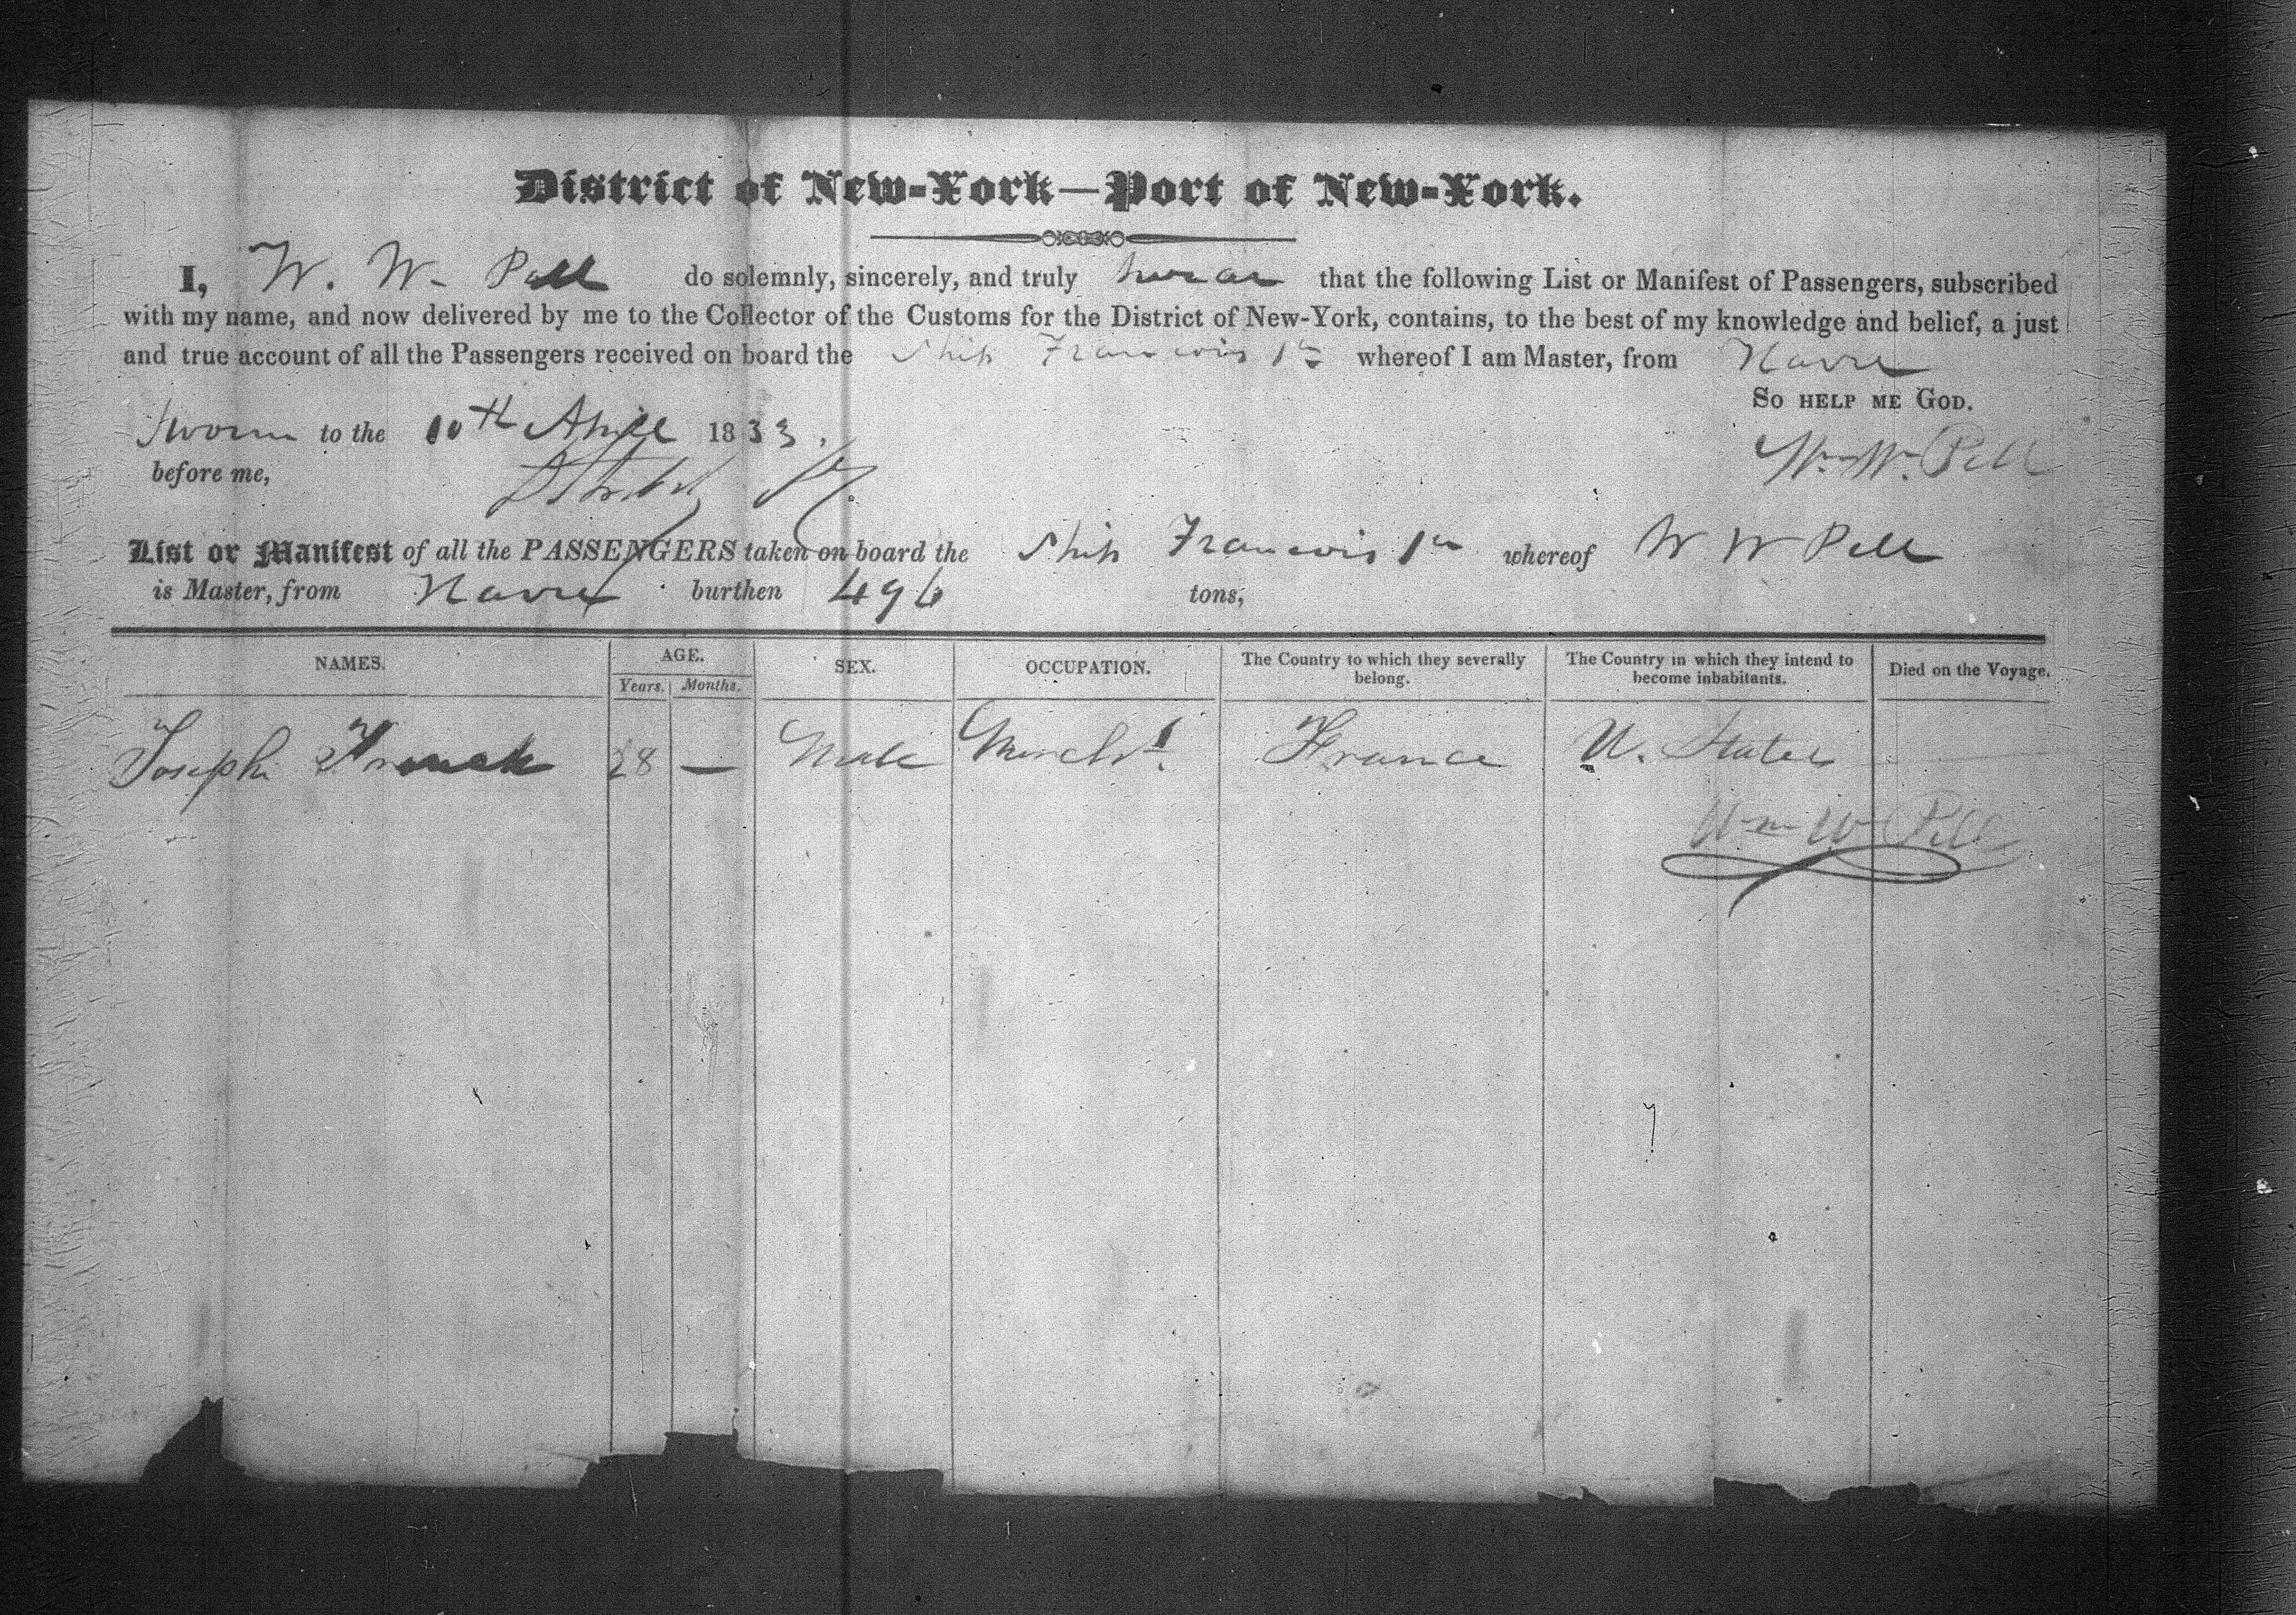 District of New-York—Port of New-York.
I, W. W. Pell do solemnly, sincerely, and truly swear that the following List or Manifest of Passengers, subscribed
with my name, and now delivered by me to the Collector of the Customs for the District of New-York, contains, to the best of my knowledge and belief, a just
and true account of all the Passengers received on board the Ship Francois 1er whereof I am Master, from Havre
So help me God.
Sworn to the 10th April 1833.
Wm W. Pell
before me,
List or Manifest of all the PASSENGERS taken on board the Ship Francois 1er whereof W W Pell
is Master, from Havre burthen 496 tons,
NAMES. AGE. SEX. OCCUPATION. The Country to which they severally belong. The Country in which they intend to become inhabitants. Died on the Voyage.
Years. Months.
Joseph 28 — Male Mercht. France U. States
Wm W Pell